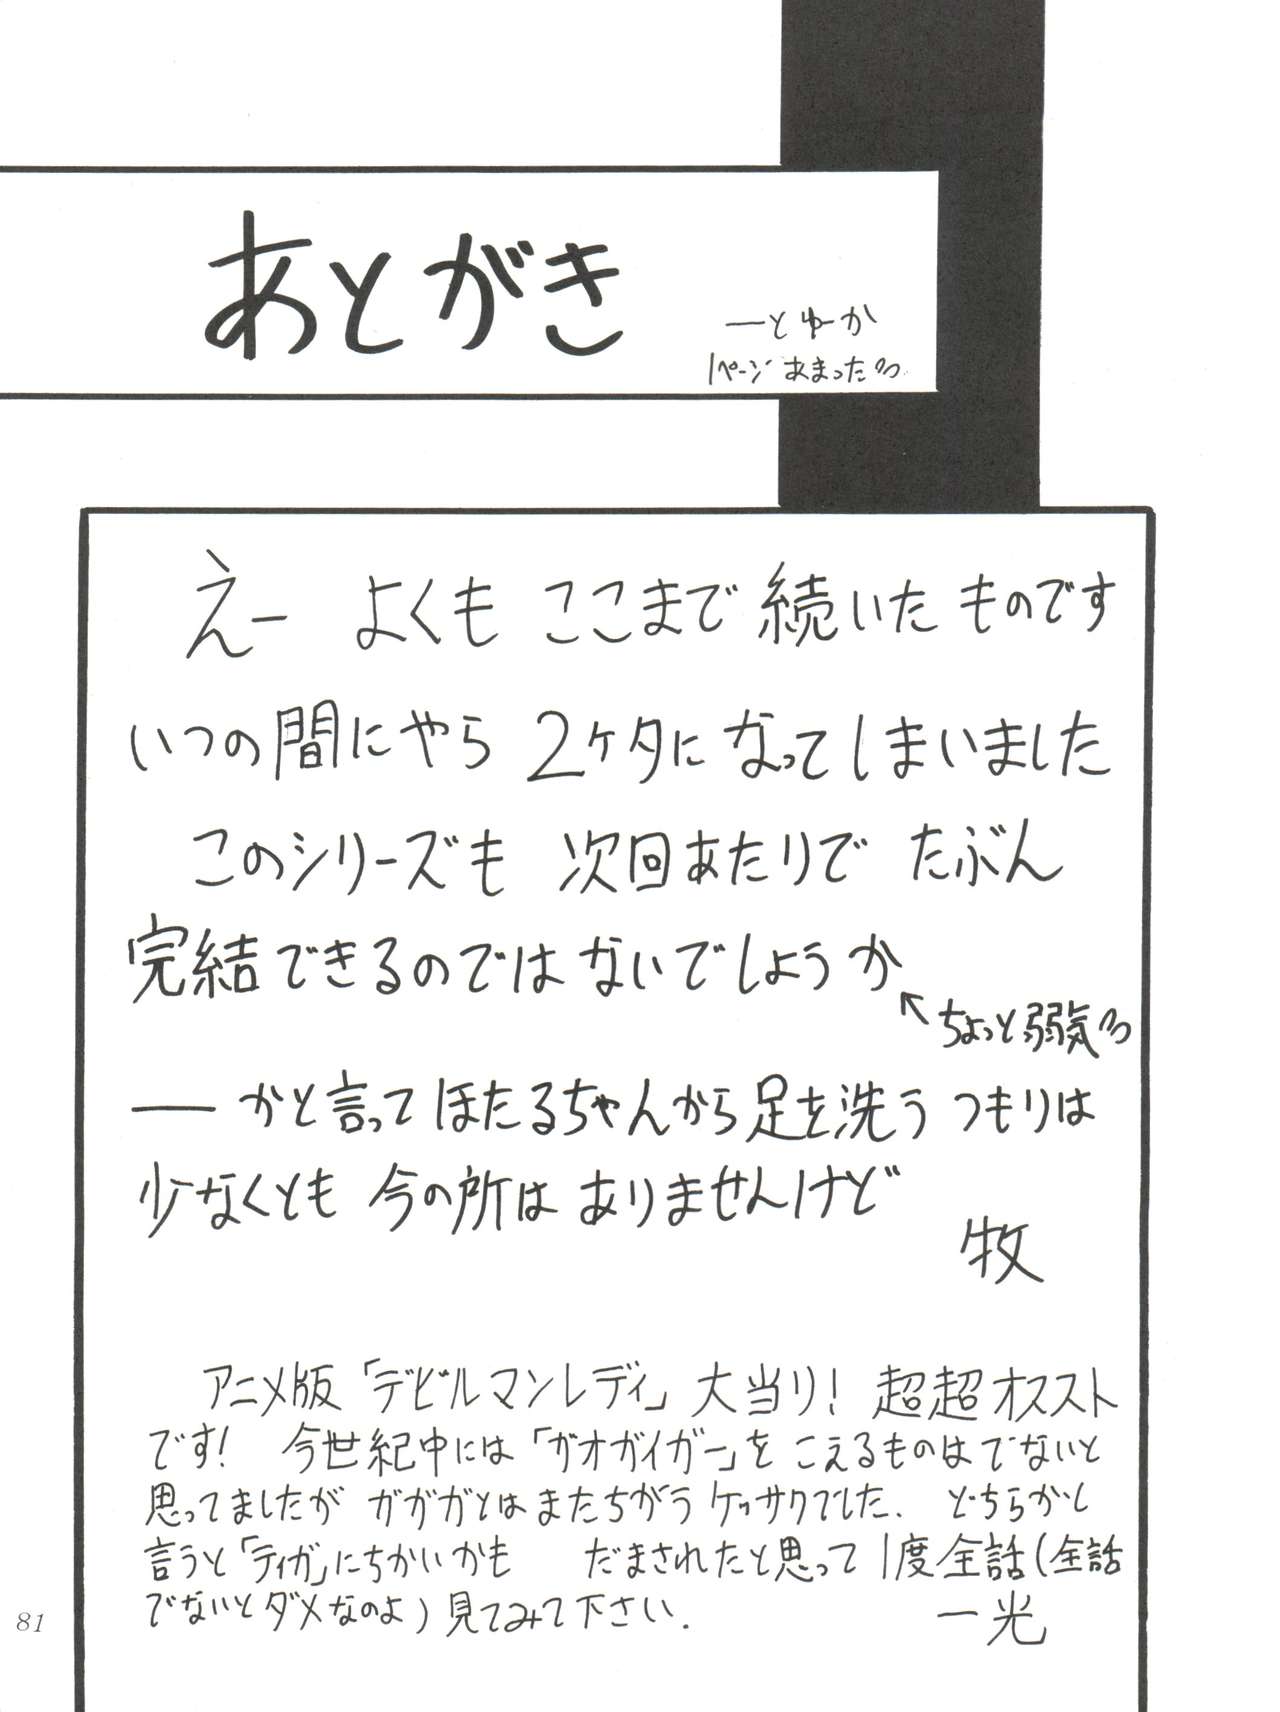 あとがき
―とゆーか
1ページあまった
えー よくも ここまで 続いた ものです
いつの間にやら 2ケタに なってしまいました
このシリーズも 次回あたりで たぶん
完結できるのでは ないでしょうか
←ちょっと弱気
― かと言って ほたるちゃんから 足を洗う つもりは
少なくとも 今の所は ありませんけど
牧
アニメ版「デビルマンレディ」大当り! 超超オススト
です! 今世紀中には「ガオガイガー」を こえるものは でないと
思ってましたが ガガガとは またちがう ケッサクでした、 どちらかと
言うと「ティガ」にちかいかも だまされたと思って 1度全話(全話
でないとダメなのよ)見てみて下さい.
一光
81